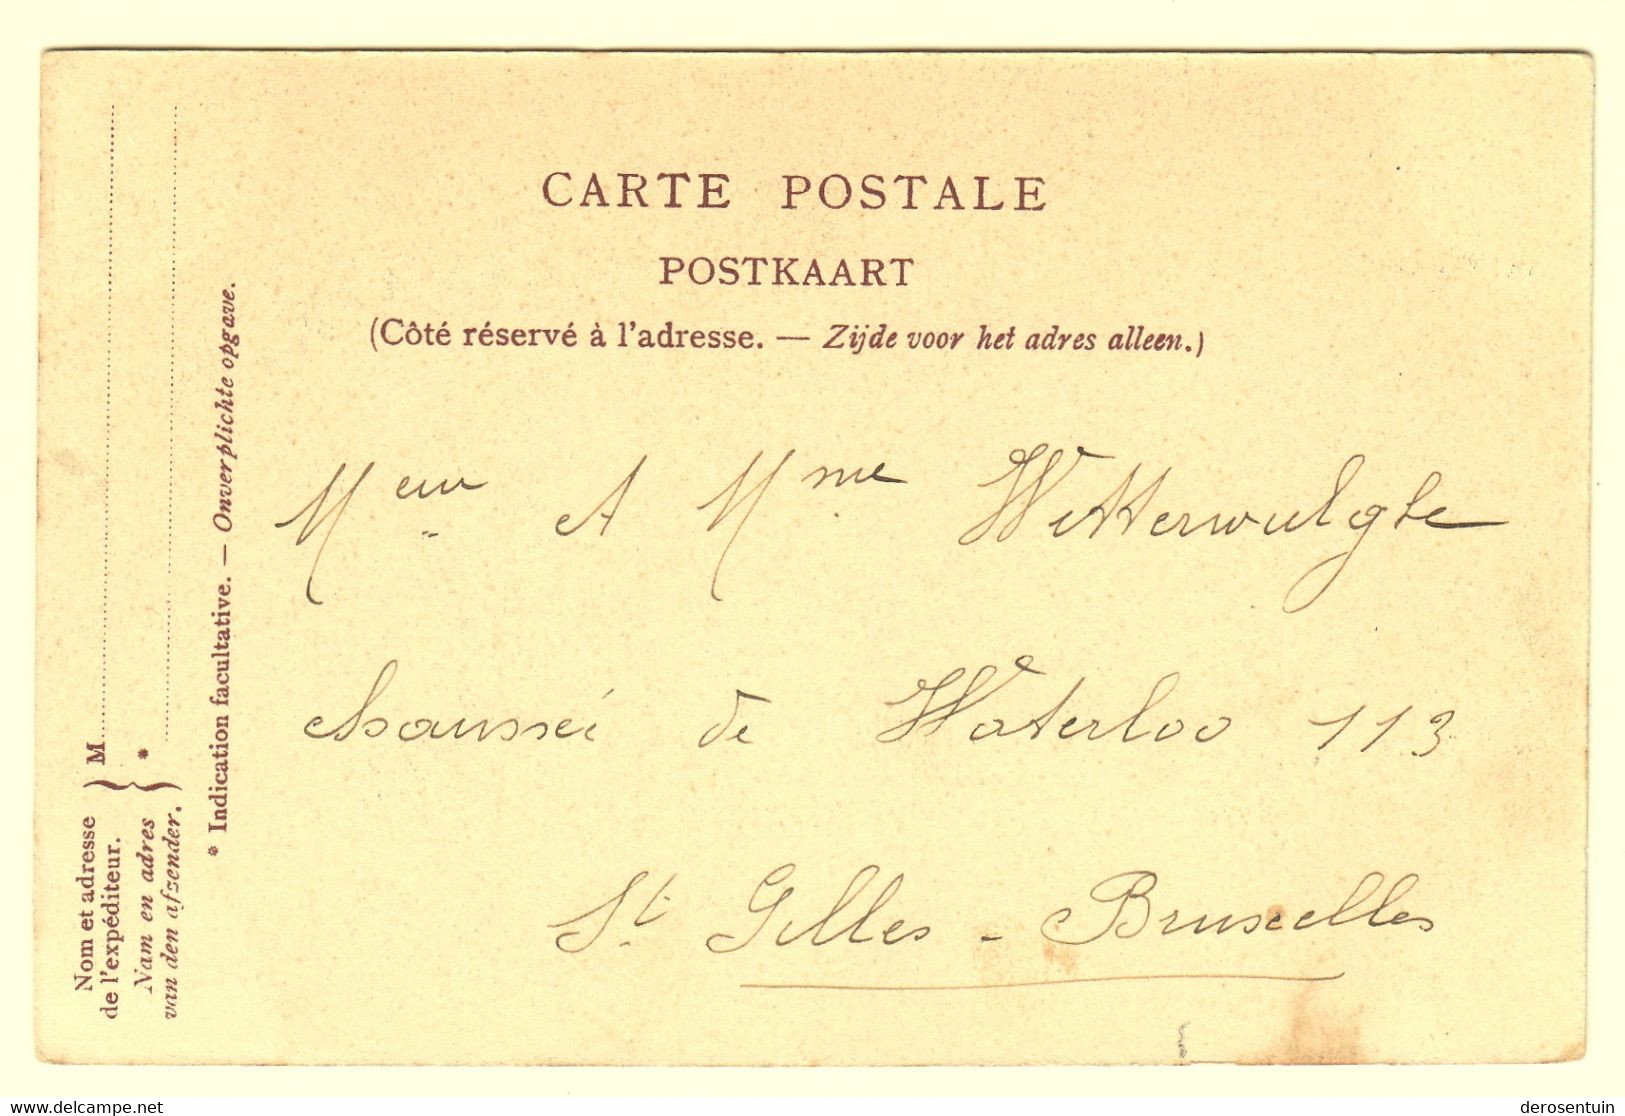 CARTE POSTALE
POSTKAART
(Côté réservé à l'adresse. — Zijde voor het adres alleen.)
Meur et Mme Wetterwulghe
chaussée de Waterloo 113
St Gilles - Bruxelles
Nom et adresse
de l'expéditeur.
Nam en adres
van den afzender.
M
*
* Indication facultative. — Onverplichte opgave.
www.delcampe.net
derosentuin